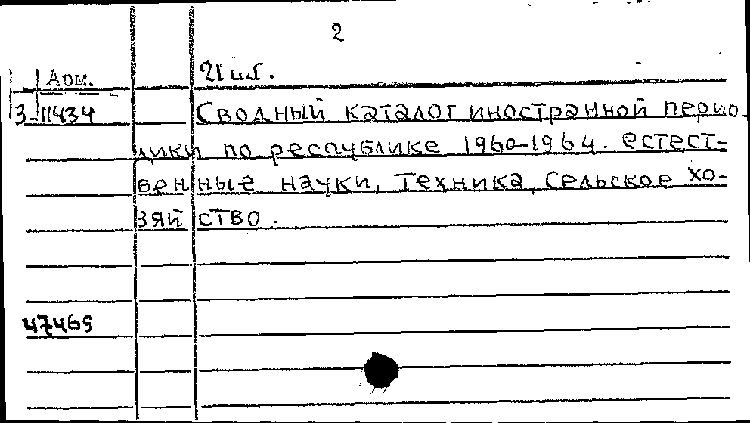 2
Арм.
3-11434 Сводный каталог иностранной перио
дики по республике 1960-1964. Естест-
венные науки, техника, сельское хо-
зяйство.
47469